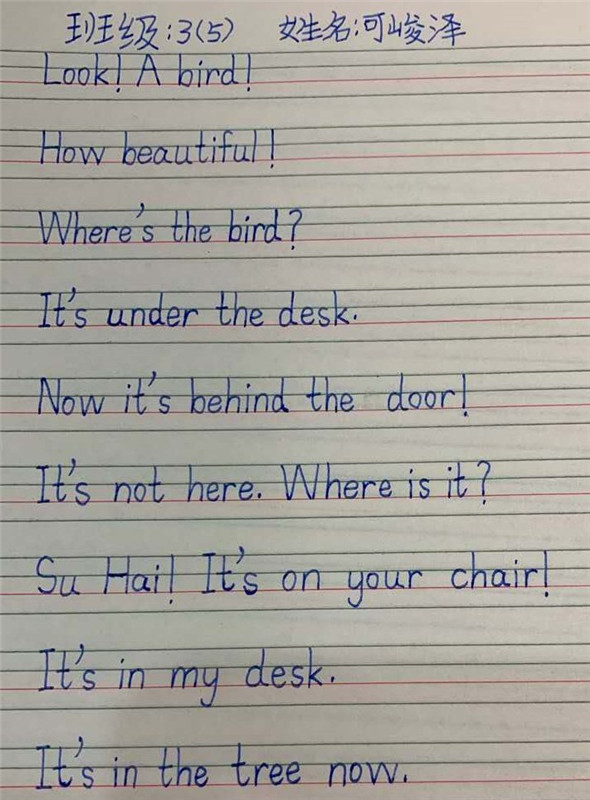 班级:3(5) 姓名:可峻泽
Look! A bird!
How beautiful!
Where's the bird?
It's under the desk.
Now it's behind the door!
It's not here. Where is it?
Su Hai! It's on your chair!
It's in my desk.
It's in the tree now.